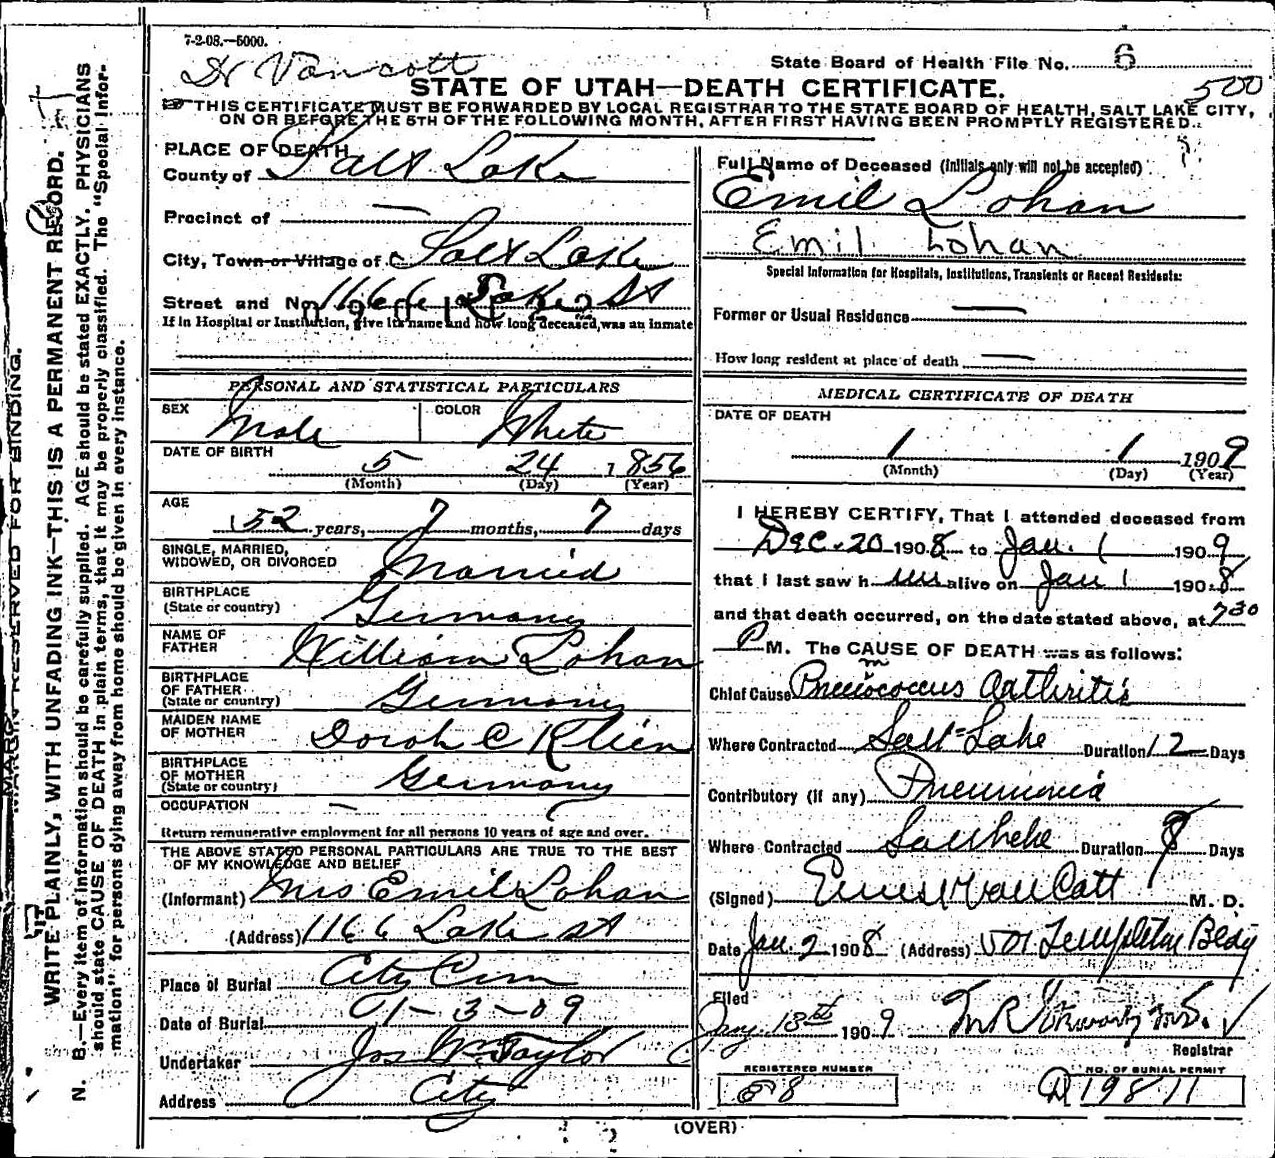 7-2-08.—5000.
Dr Vancott
State Board of Health File No. 6
500
STATE OF UTAH—DEATH CERTIFICATE.
THIS CERTIFICATE MUST BE FORWARDED BY LOCAL REGISTRAR TO THE STATE BOARD OF HEALTH, SALT LAKE CITY,
ON OR BEFORE THE 5TH OF THE FOLLOWING MONTH, AFTER FIRST HAVING BEEN PROMPTLY REGISTERED.
MARGIN RESERVED FOR BINDING.
WRITE PLAINLY, WITH UNFADING INK—THIS IS A PERMANENT RECORD.
N. B.—Every item of information should be carefully supplied. AGE should be stated EXACTLY. PHYSICIANS
should state CAUSE OF DEATH in plain terms, that it may be properly classified. The "Special Infor-
mation" for persons dying away from home should be given in every instance.
PLACE OF DEATH
County of Salt Lake
Precinct of —
City, Town or Village of Salt Lake
Street and No. 1166 Lake St
If in Hospital or Institution, give its name and how long deceased, was an inmate
PERSONAL AND STATISTICAL PARTICULARS
SEX Male COLOR White
DATE OF BIRTH
5 24 1856
(Month) (Day) (Year)
AGE
52 years, 7 months, 7 days
SINGLE, MARRIED,
WIDOWED, OR DIVORCED Married
BIRTHPLACE
(State or country) Germany
NAME OF
FATHER William Lohan
BIRTHPLACE
OF FATHER
(State or country) Germany
MAIDEN NAME
OF MOTHER Dorah C Klein
BIRTHPLACE
OF MOTHER
(State or country) Germany
OCCUPATION —
Return remunerative employment for all persons 10 years of age and over.
THE ABOVE STATED PERSONAL PARTICULARS ARE TRUE TO THE BEST
OF MY KNOWLEDGE AND BELIEF
(Informant) Mrs Emil Lohan
(Address) 1166 Lake St
Place of Burial City Cem
Date of Burial 1-3-09
Undertaker Jos Wm Taylor
Address City
Full Name of Deceased (initials only will not be accepted)
Emil Lohan
Emil Lohan
Special Information for Hospitals, Institutions, Transients or Recent Residents:
Former or Usual Residence —
How long resident at place of death —
MEDICAL CERTIFICATE OF DEATH
DATE OF DEATH
1 1 1909
(Month) (Day) (Year)
I HEREBY CERTIFY, That I attended deceased from
Dec. 20 1908 to Jan. 1 1909
that I last saw him alive on Jan 1 1908
and that death occurred, on the date stated above, at 730
P M. The CAUSE OF DEATH was as follows:
Chief Cause Pneumococcus Arthritis
Where Contracted Salt-Lake Duration 12 Days
Contributory (if any) Pneumonia
Where Contracted Salt Lake Duration 8 Days
(Signed) Ernest Van Cott M. D.
Date Jan. 2 1908 (Address) 501 Templeton Bldg
Filed
Jany 18th 1909
Registrar
REGISTERED NUMBER
68
NO. OF BURIAL PERMIT
D19811
(OVER)